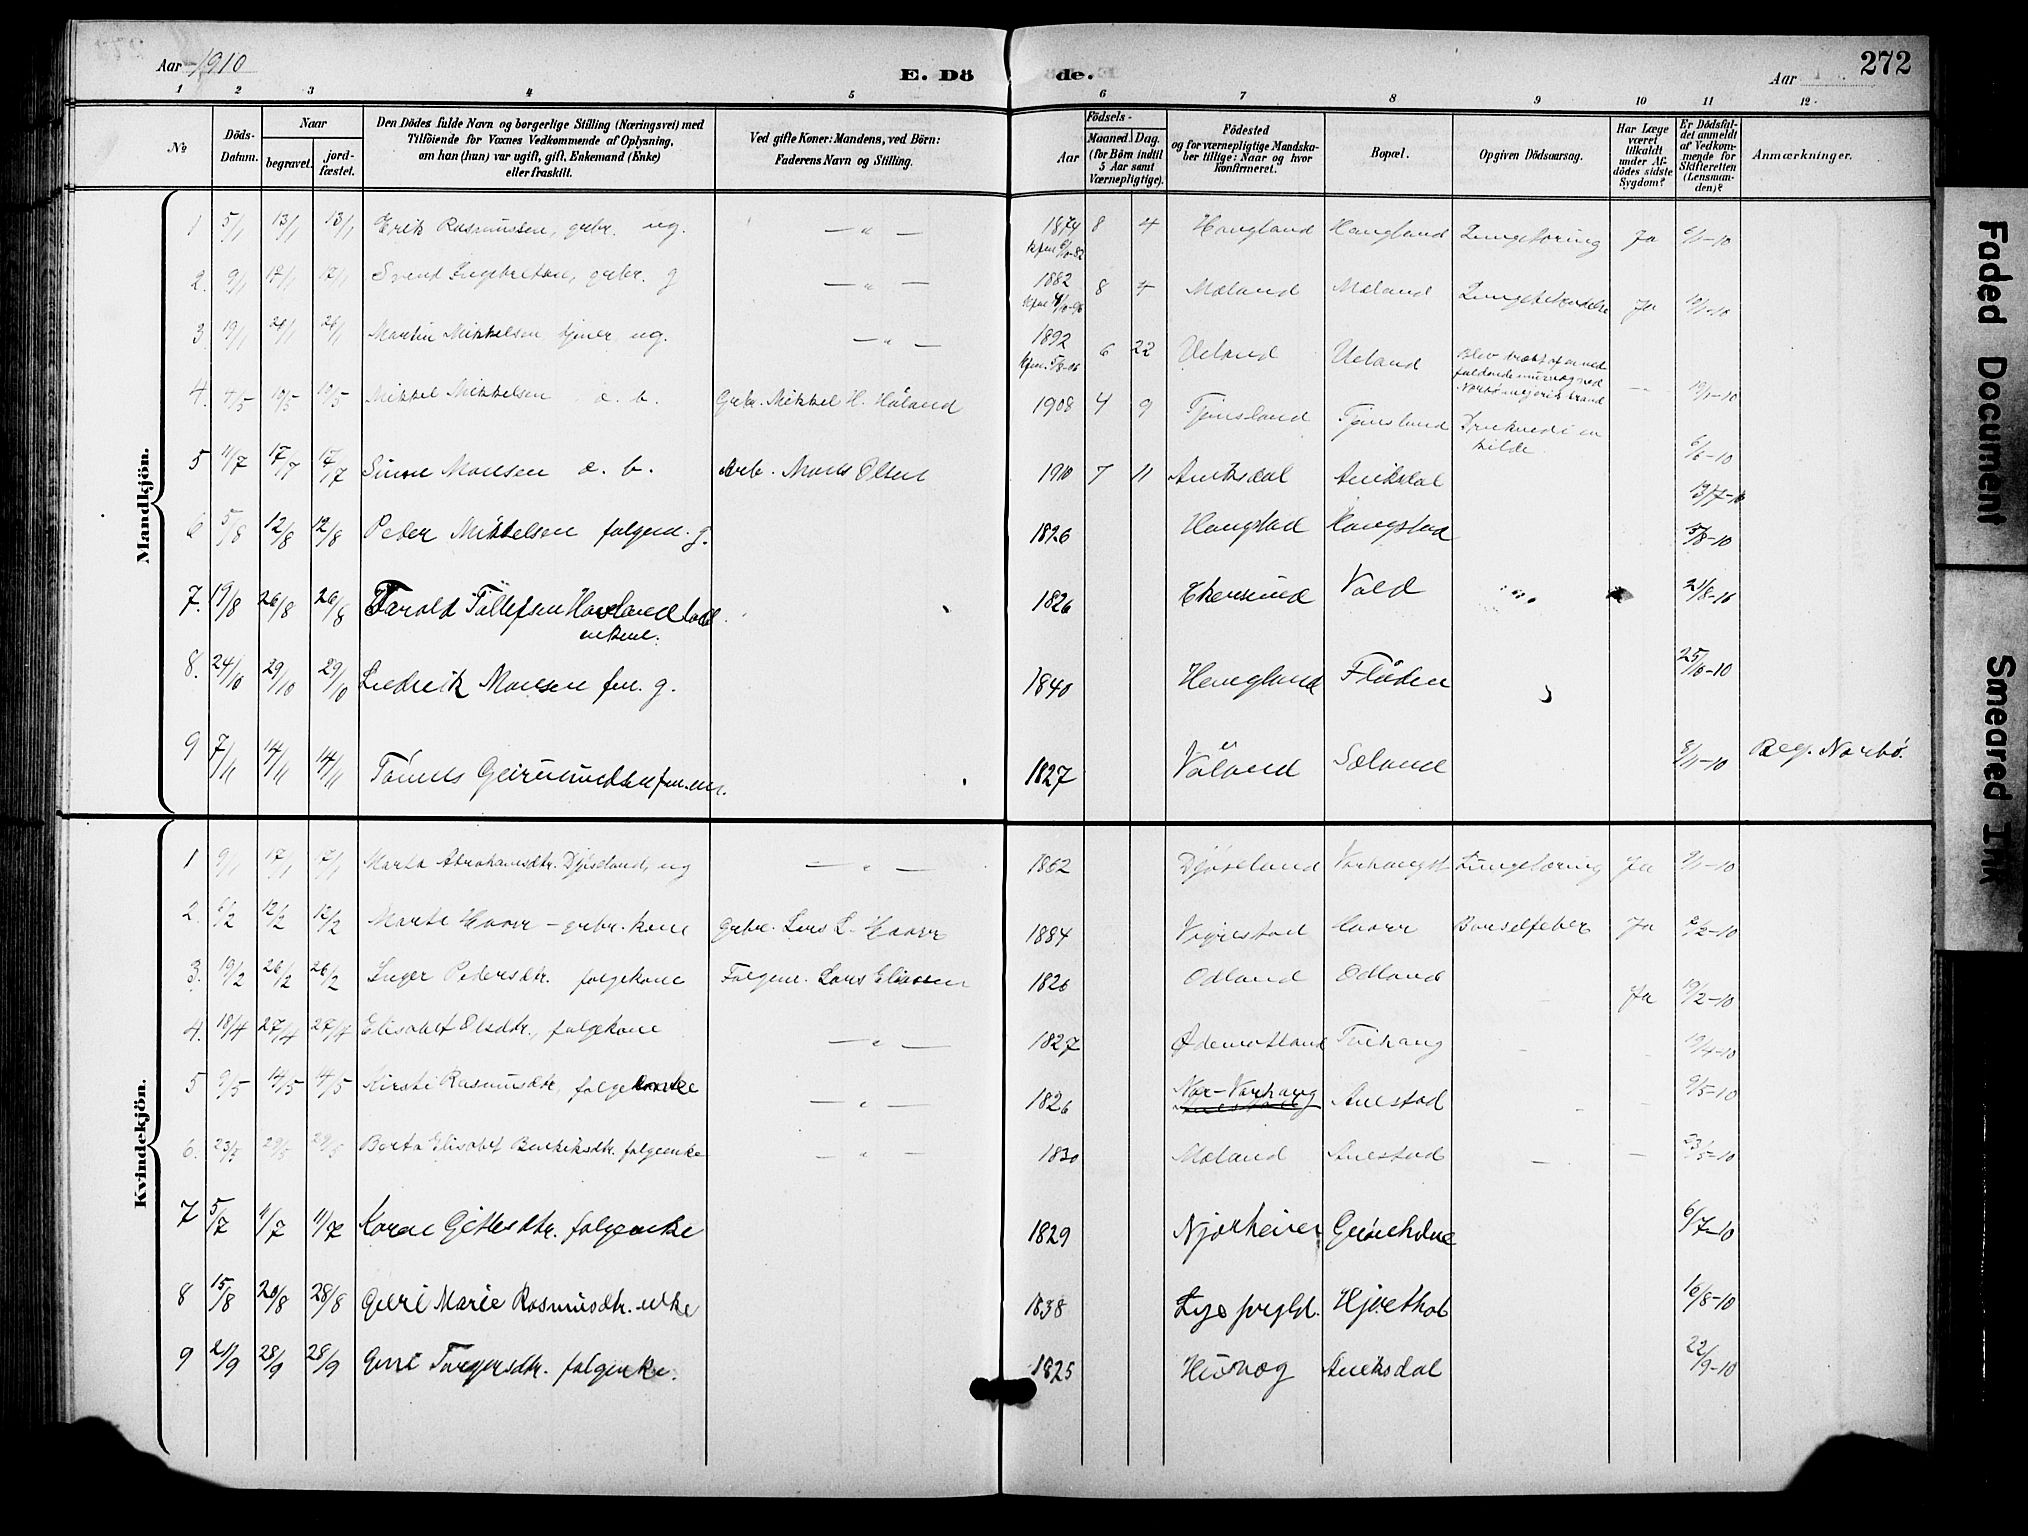 Aar 1910
E. Dö de.
Aar
272
1 2 3 4 5 6 7 8 9 10 11 12
No
Döds-Datum.
Naar
begravet.
jord-fæstet.
Den Dödes fulde Navn og borgerlige Stilling (Næringsvei) med
Tilföiende for Voxnes Vedkommende af Oplysning,
om han (hun) var ugift, gift, Enkemand (Enke)
eller fraskilt.
Ved gifte Koner: Mandens, ved Börn:
Faderens Navn og Stilling.
Födsels-
Aar
Maaned Dag.
(for Börn indtil
5 Aar samt
Værnepligtige).
Födested
og for værnepligtige Mandska-
ber tillige: Naar og hvor
konfirmeret.
Bopæl.
Opgiven Dödsaarsag.
Har Læge
været
tilkaldt
under Af-
dödes sidste
Sygdom?
Er Dödsfal-
det anmeldt
af Vedkom-
mende for
Skifteretten
(Lensman-
den)?
Anmærkninger.
Mandkjön.
1 5/1 13/1 13/1 Erik Rasmussen, grbr. ug. — " — 1874 8 4 Haugland Haugland Lungetæring Ja
2. 9/1 17/1 17/1 Svend Ingebretsen, grbr. g — " — 1882 8 4 Mæland Mæland Ja
3. 19/1 26/1 26/1 Martin Mikkelsen tjener ug. — " — 1892 6 22 Ueland Ueland 19/1-10
4. 4/5 10/5 10/5 Mikkel Mikkelsen Grbr. Mikkel H. Håland 1908 4 9 Tjemsland Tjemsland Druknede i en
kilde.
5 11/7 17/7 17/7 Simon Monsen Arb. Mons Olsen 1910 7 11 Aniksdal Aniksdal 13/7-10
6 5/8 12/8 12/8 Peder Mikkelsen folgem. g. 1826 Haugstad Haugstad 5/8-10
7. 19/8 26/8 26/8 Harald Tollefsen Haveland
enkem. 1826 Ekersund Vold 21/8-10
8. 24/10 29/10 29/10 Fredrik Monsen fm. g. 1840 Haugland Flåden 25/10-10
9 7/11 14/11 14/11 Tönnes Geirmundsen fm. em. 1827 Våland Sæland 8/11-10 Beg. Nærbö.
Kvindekjön.
1 9/1 17/1 17/1 Marta Abrahamsdtr. Djuseland, ug — " — 1862 Djuseland Varhaugst Lungetæring Ja 9/1-10
2. 6/2 12/2 12/2 Marte Haarr – grbr. kone Grbr. Lars L. Haarr 1884 Vigrestad Haarr Barselfeber Ja
3. 19/2 26/2 26/2 Inger Pedersdtr. folgekone Folgem. Lars Eliassen 1826 Odland Odland Ja 19/2-10
4. 18/4 27/4 27/4 Elisabet Olsdtr., folgekone — " — 1827 Ødemotland Tuehaug 19/4-10
5 9/5 14/5 14/5 Kirsti Rasmusdtr, folgeenke — " — 1826 Nor-Varhaug Auestad 9/5-10
6. 23/5 29/5 29/5 Berta Elisabet Berkiksdtr. folgeenke — " — 1830 Mæland Auestad — — 23/5-10
7 5/7 11/7 11/7 Karen Gittesdtr. folgeenke 1829 Njærheim 6/7-10
8 15/8 28/8 Guri Marie Rasmusdtr. enke 1838 Lye prgld. 16/8-10
9 21/9 28/9 28/9 Guri Torgersdtr. folgenke. 1825 Husvog Aniksdal 22/9-10
Faded Document
Smeared Ink